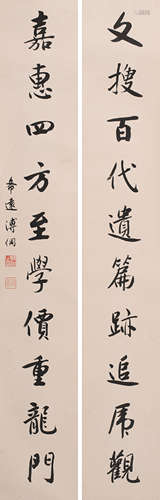 文搜百代遺篇跡追虎觀
嘉惠四方至學價重龍門
希遠溥侗